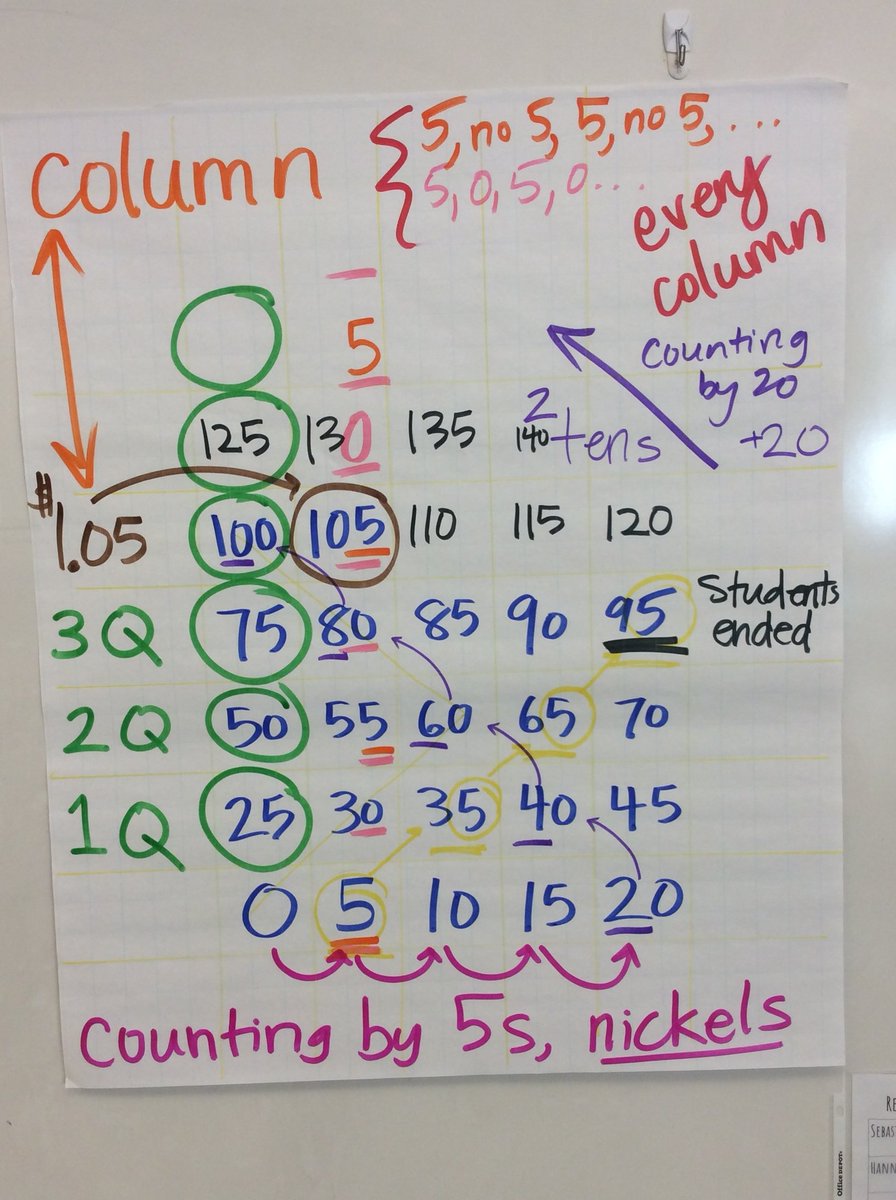 Column
5, no 5, 5, no 5, ...
5, 0, 5, 0...
every
column
Counting
by 20
+20
5
2
125 130 135 140 tens
$1.05 100 105 110 115 120
3Q 75 80 85 90 95 Students
ended
2Q 50 55 60 65 70
1Q 25 30 35 40 45
0 5 10 15 20
Counting by 5s, nickels
Office DEPOT
RE
SEBAS
HANN